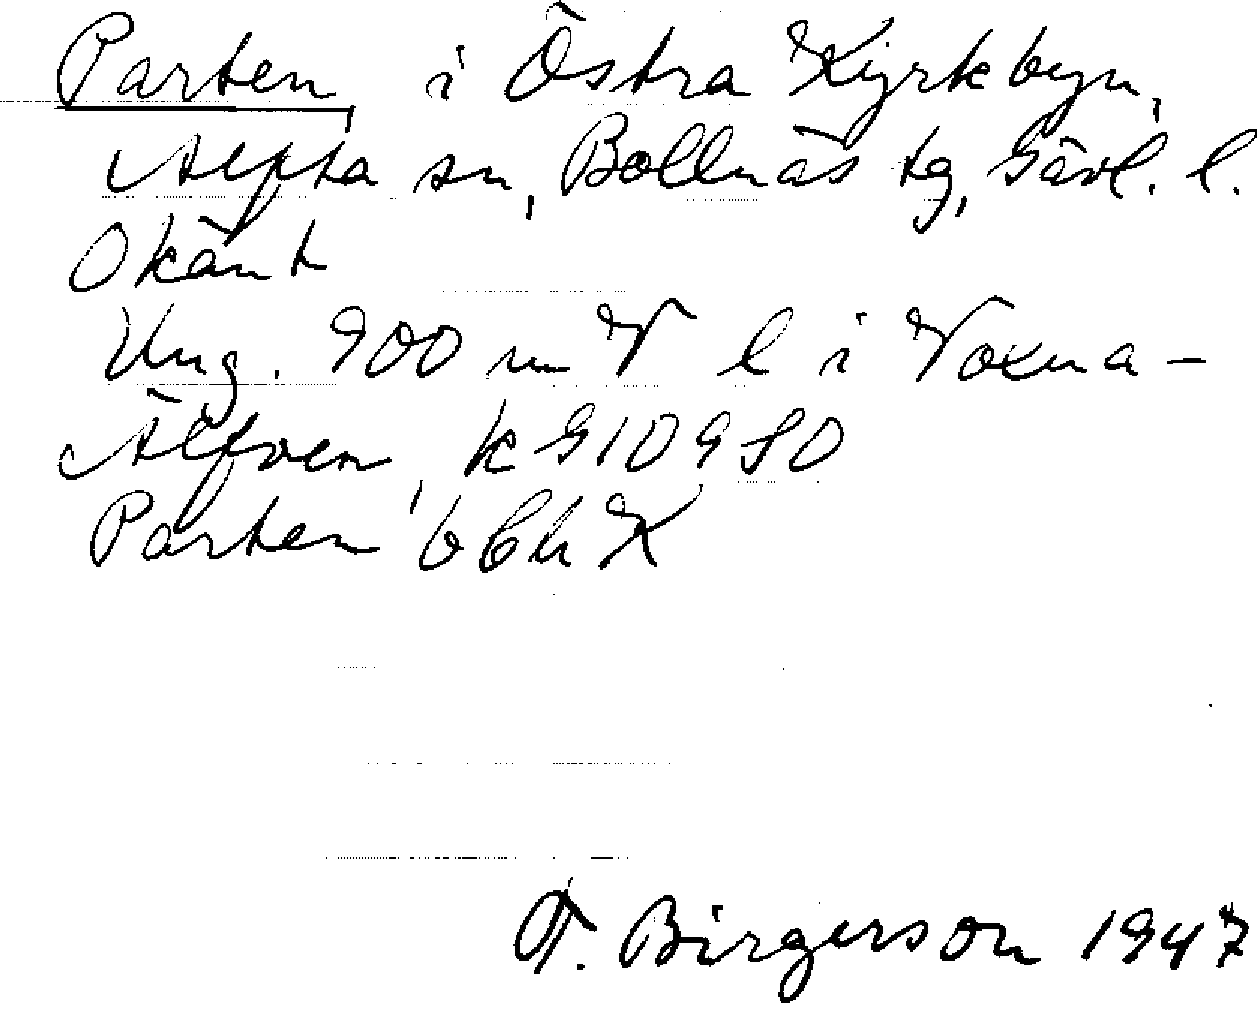 Parten, i Östra Kyrkbyn,
Alfta sn, Bollnäs tg, Gävl. l.
Okänt
Ung. 900 m V l i Voxna-
Älfven, k 910980
Parten bbh X
T. Birgerson 1947